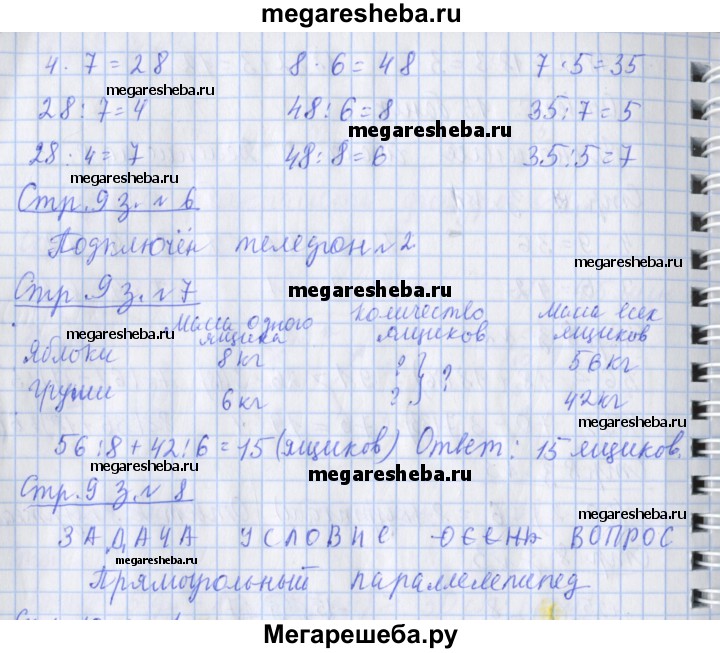 megaresheba.ru
4 · 7 = 28 8 · 6 = 48 7 · 5 = 35
megaresheba.ru
28 : 7 = 4 48 : 6 = 8 35 : 7 = 5
megaresheba.ru
28 : 4 = 7 48 : 8 = 6 35 : 5 = 7
megaresheba.ru
Стр. 9 з. № 6
Подключён телефон № 2
megaresheba.ru
Стр. 9 з. № 7 megaresheba.ru
Масса одного ящика Количество ящиков Масса всех ящиков
megaresheba.ru
Яблоки 8 кг ? } ? 56 кг
megaresheba.ru
Груши 6 кг ? 42 кг
56 : 8 + 42 : 6 = 15 (ящиков) Ответ: 15 ящиков.
megaresheba.ru megaresheba.ru
Стр. 9 з. № 8
megaresheba.ru
ЗАДАЧА УСЛОВИЕ ОСЕНЬ ВОПРОС
megaresheba.ru
Прямоугольный параллелепипед
Мегарешеба.ру